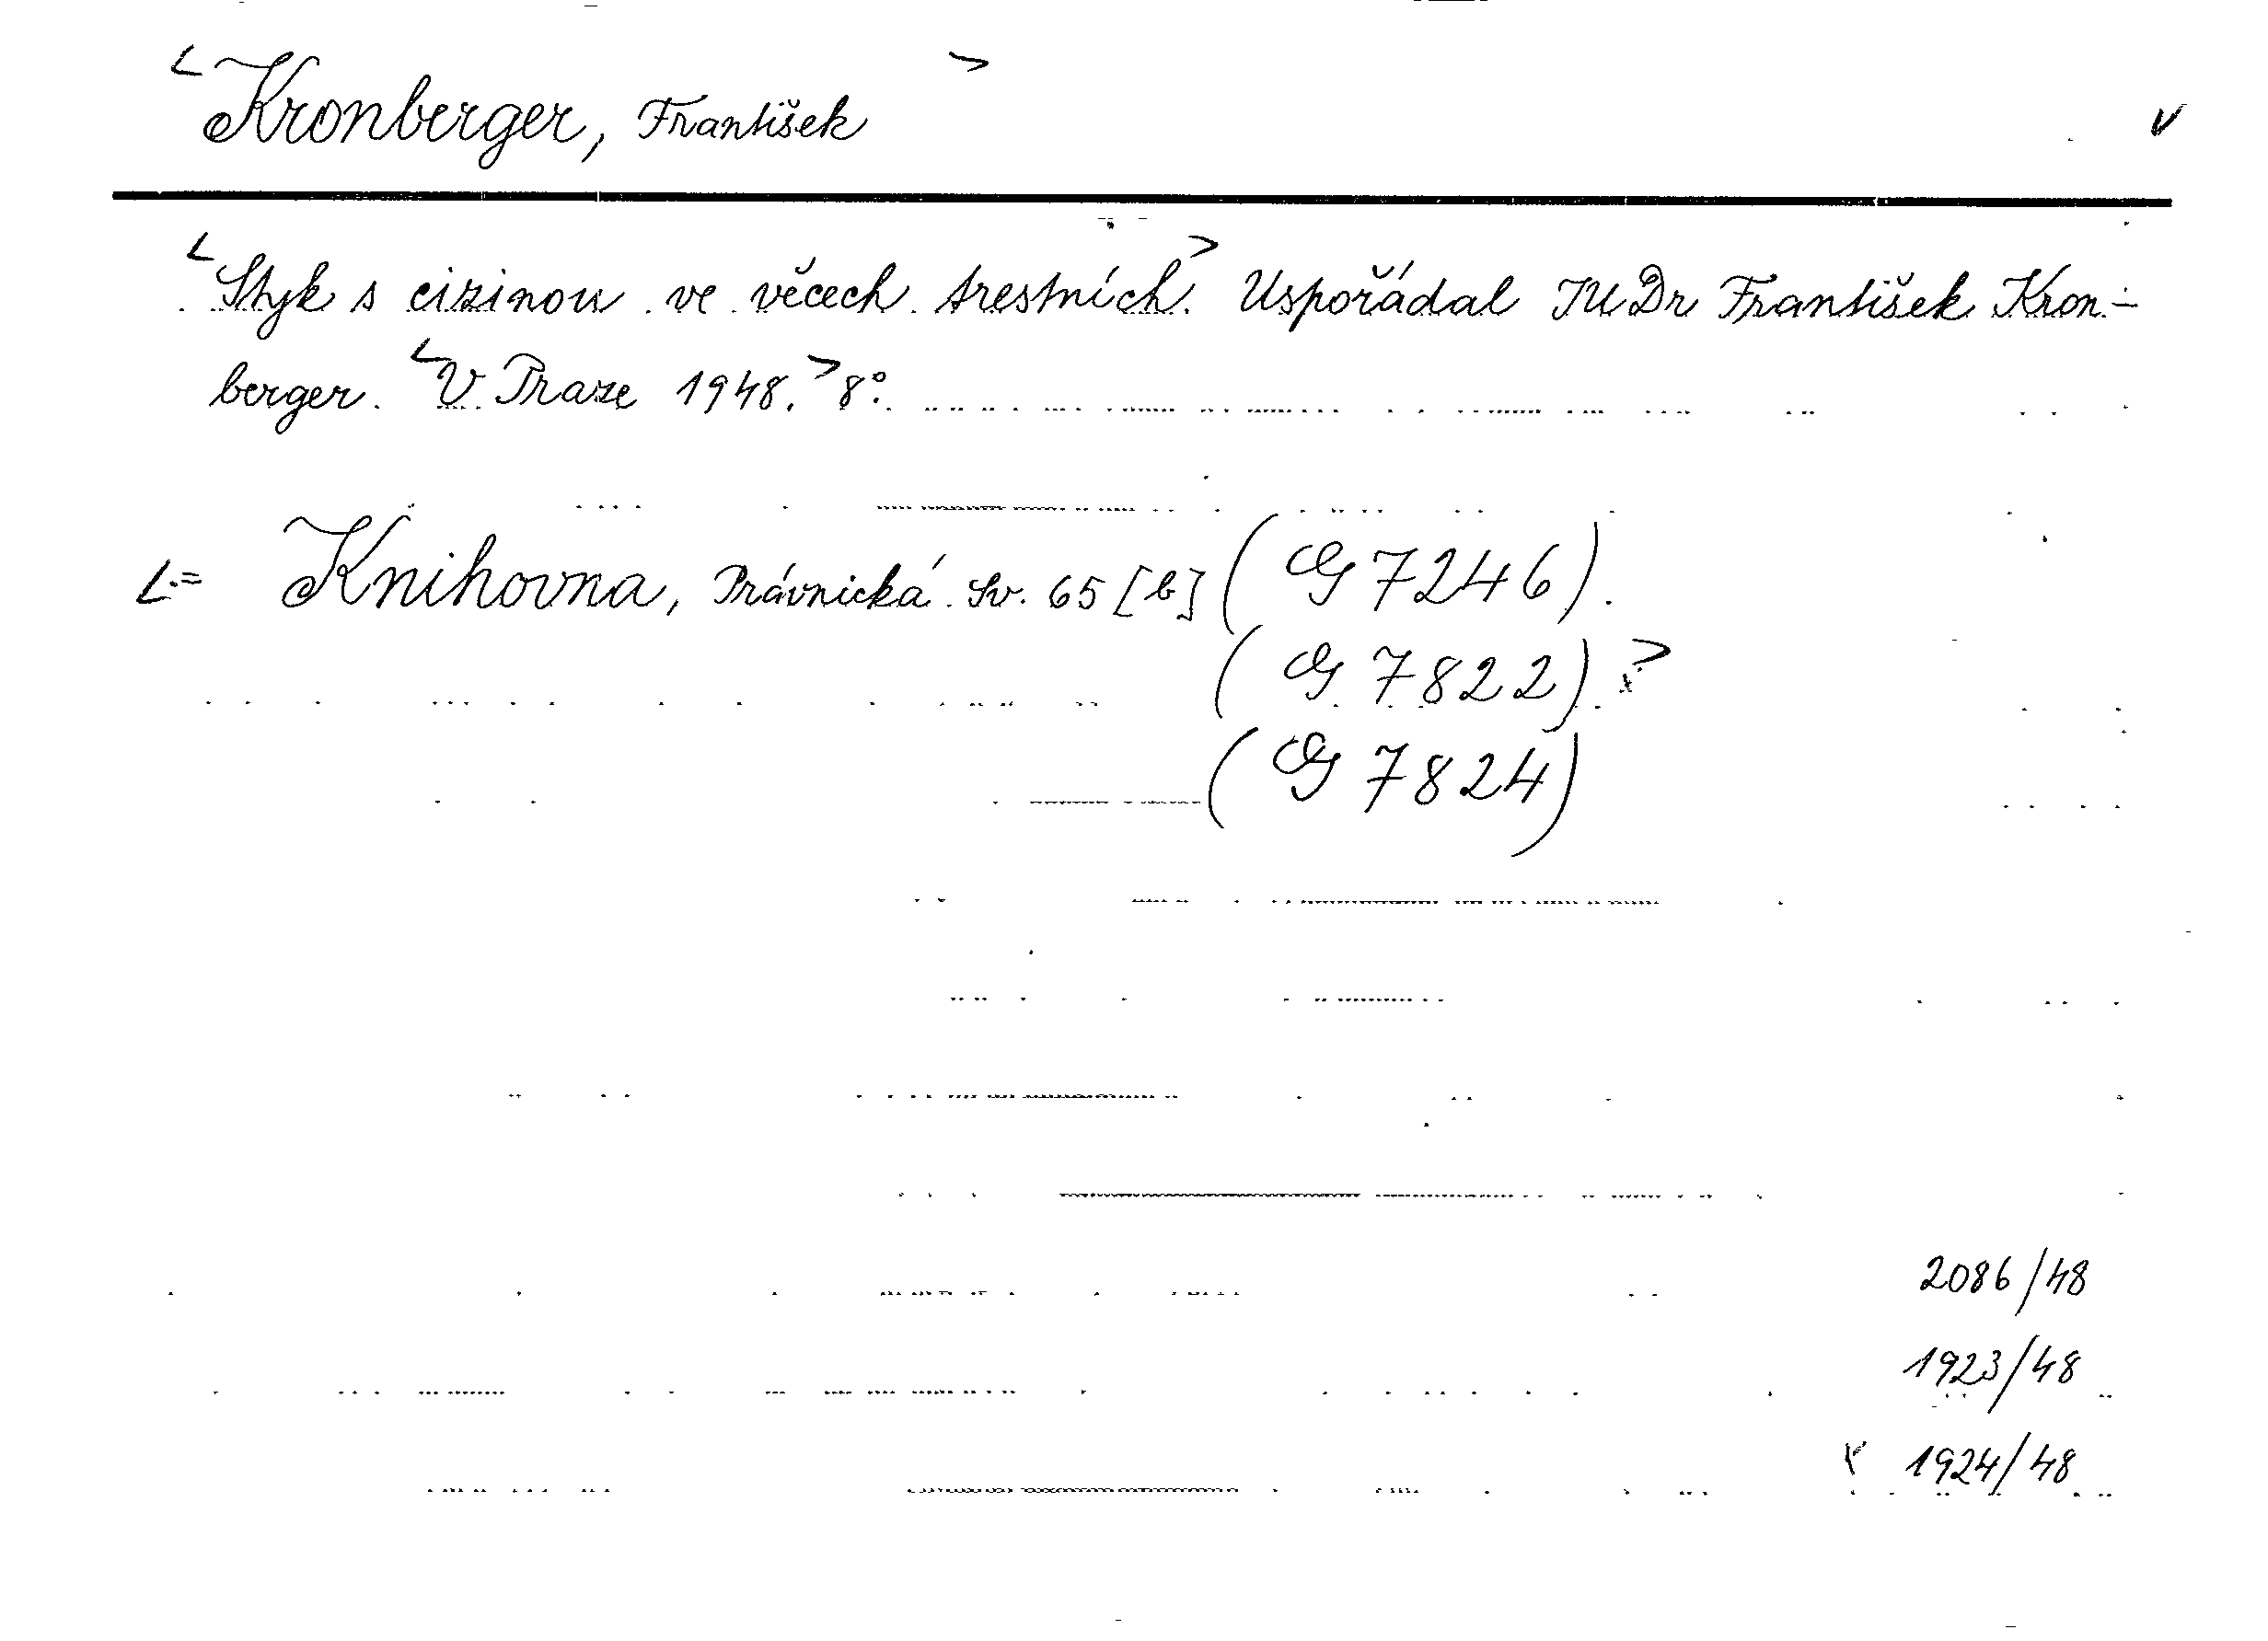 <Kronberger, František> v
<Styk s cizinou ve věcech trestních.> Uspořádal JUDr František Kron-
berger. <V Praze 1948.> 8°.
<= Knihovna, Právnická. Sv. 65 [b] (G 7246).
(G 7822).>
(G 7824)
2086/48
1923/48
1924/48